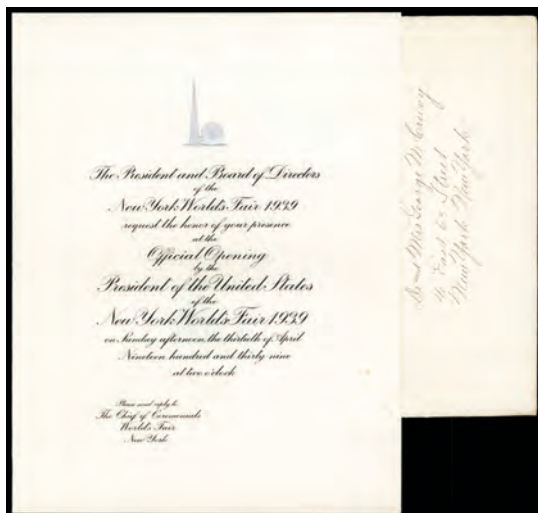 The President and Board of Directors
of the
New York World's Fair 1939
request the honor of your presence
at the
Official Opening
by the
President of the United States
of the
New York World's Fair 1939
on Sunday afternoon, the thirtieth of April
Nineteen hundred and thirty nine
at two o'clock
Please send reply to
The Chief of Ceremonials
World's Fair
New York
and Mrs George
East Street
New York New York